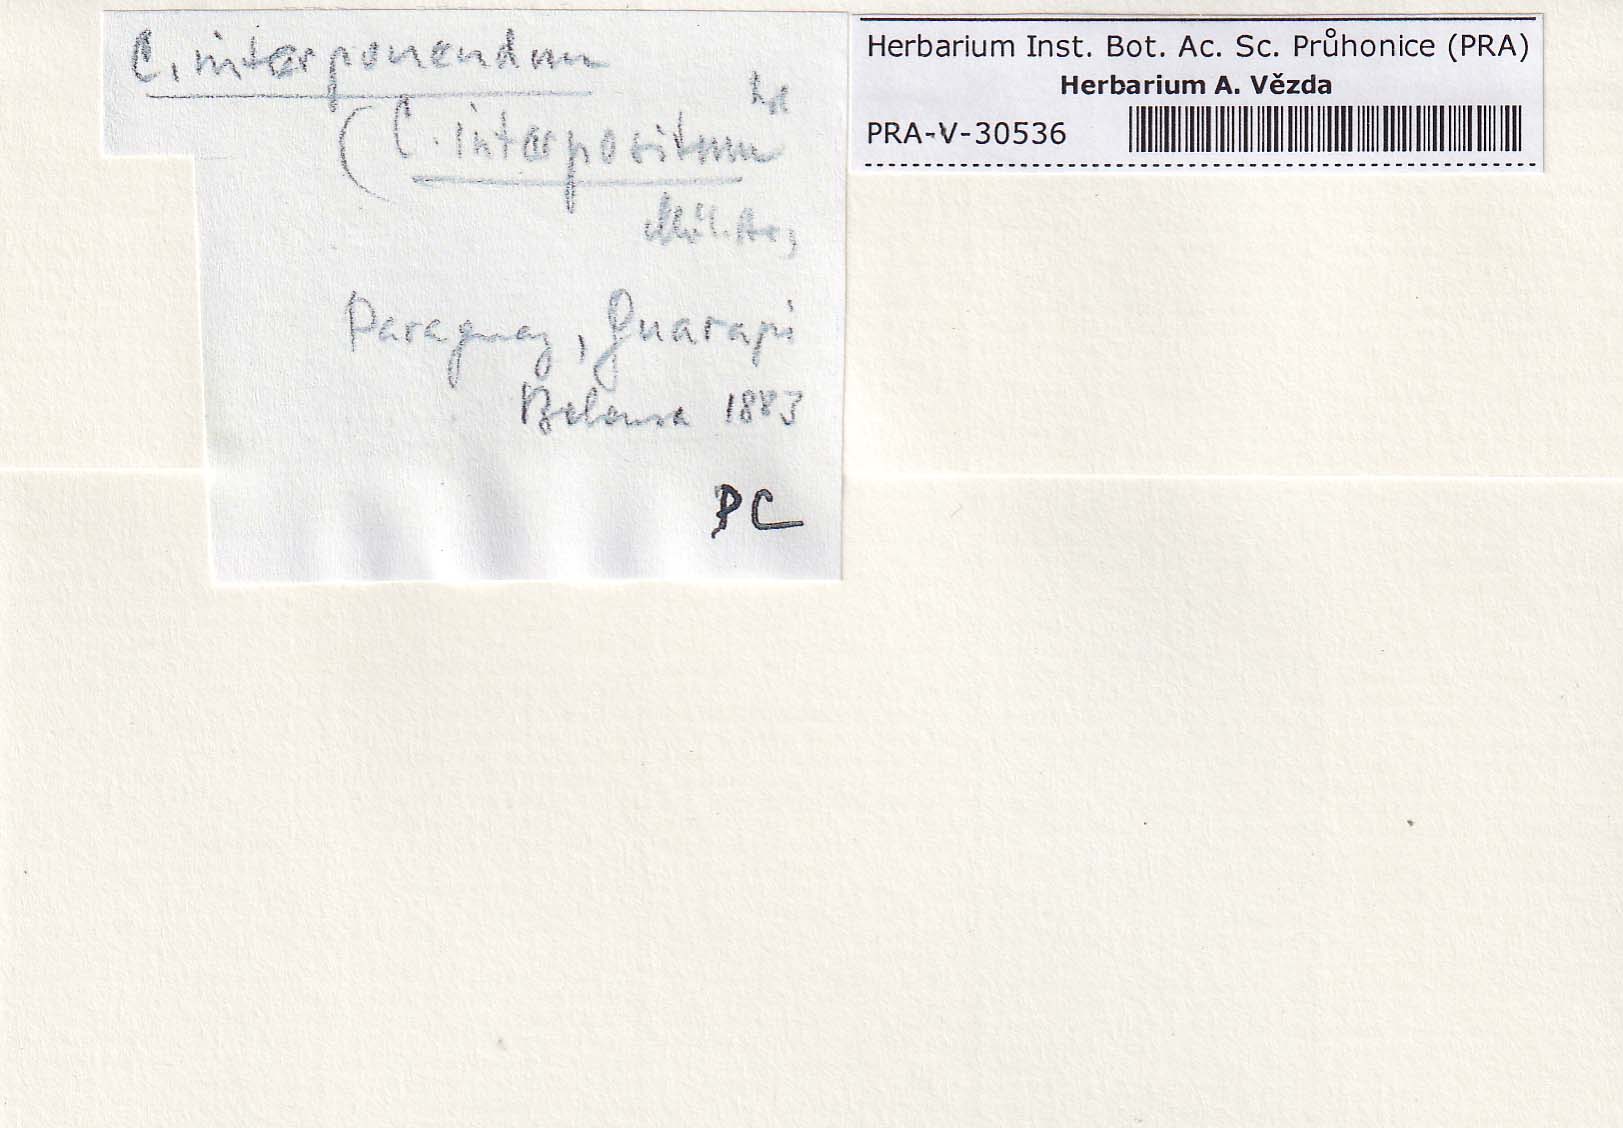 C. interponendum
Nyl
(C. interpositum
Müll. Arg.
Paraguay, Guarapi
Balansa 1883
PC
Herbarium Inst. Bot. Ac. Sc. Průhonice (PRA)
Herbarium A. Vězda
PRA-V-30536